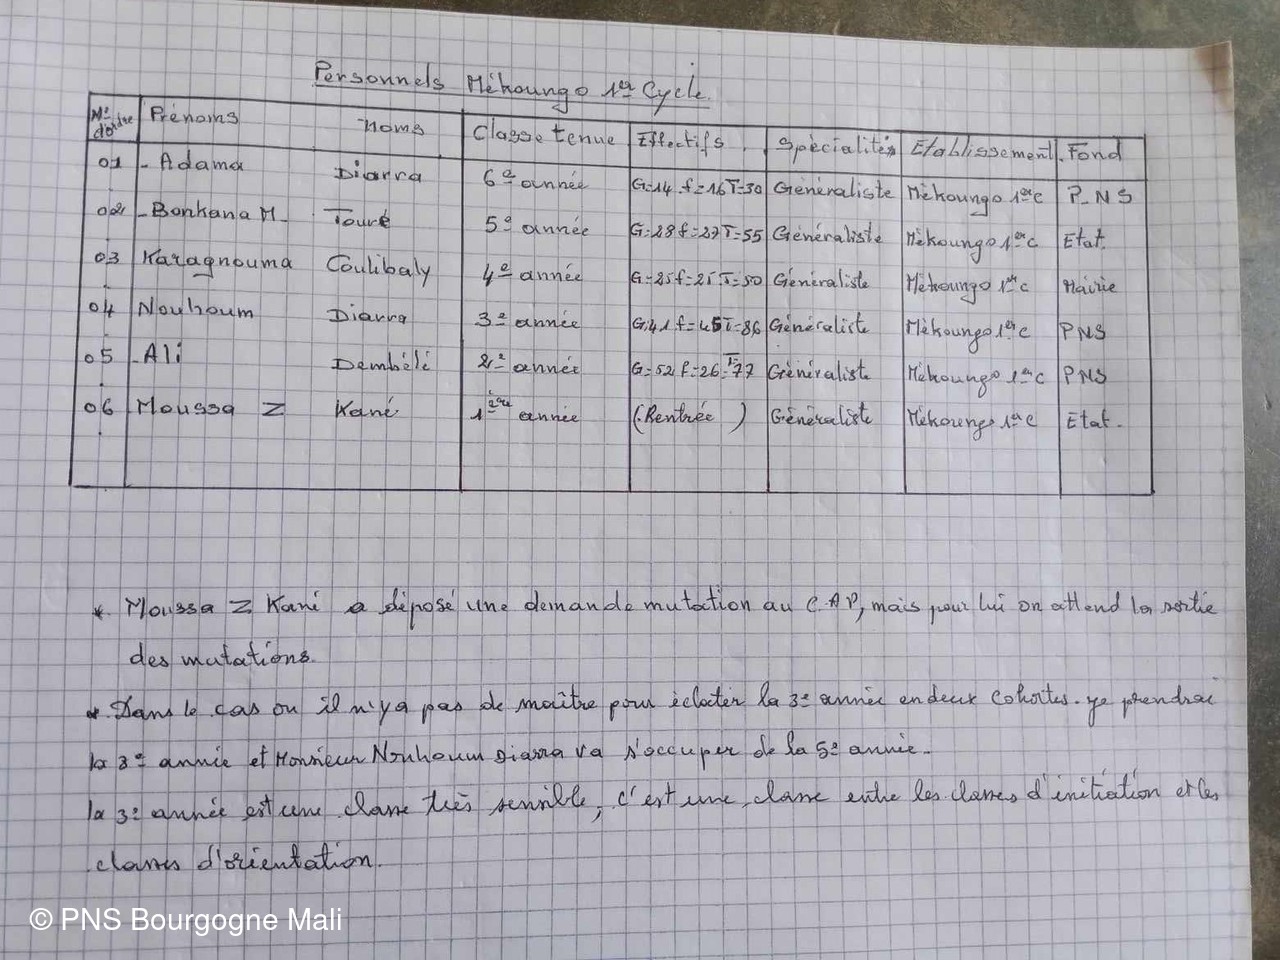 Personnels Mèkoungo 1er Cycle.
N° d'ordre Prénoms Noms Classe tenue Effectifs Spécialités Etablissement Fond
01 - Adama Diarra 6e année G=14 f=16 T=30 Généraliste Mèkoungo 1er c P_NS
02 - Bonkana M_ Touré 5e année G=28 f=27 T=55 Généraliste Mèkoungo 1er c Etat.
03 Karagnouma Coulibaly 4e année G=25 f=25 T=50 Généraliste Mèkoungo 1er c Mairie
04 Nouhoum Diarra 3e année G=41 f=45 T=86 Généraliste Mèkoungo 1er c PNS
05 - Ali Dembélé 2e année G=52 f=26 T=77 Généraliste Mèkoungo 1er c PNS
06 Moussa Z Kané 1ère année (Rentrée) Généraliste Mèkoungo 1er c Etat.
* Moussa Z Kané a déposé une demande mutation au C.AP, mais pour lui on attend la sortie
des mutations.
* Dans le cas ou il n'y a pas de maître pour éclater la 3e année en deux cohortes. ye prendrai
la 3e année et Monsieur Nouhoum Diarra va s'occuper de la 5e année.
la 3e année est une classe très sensible, c'est une classe entre les classes d'initiation et les
classes d'orientation.
© PNS Bourgogne Mali